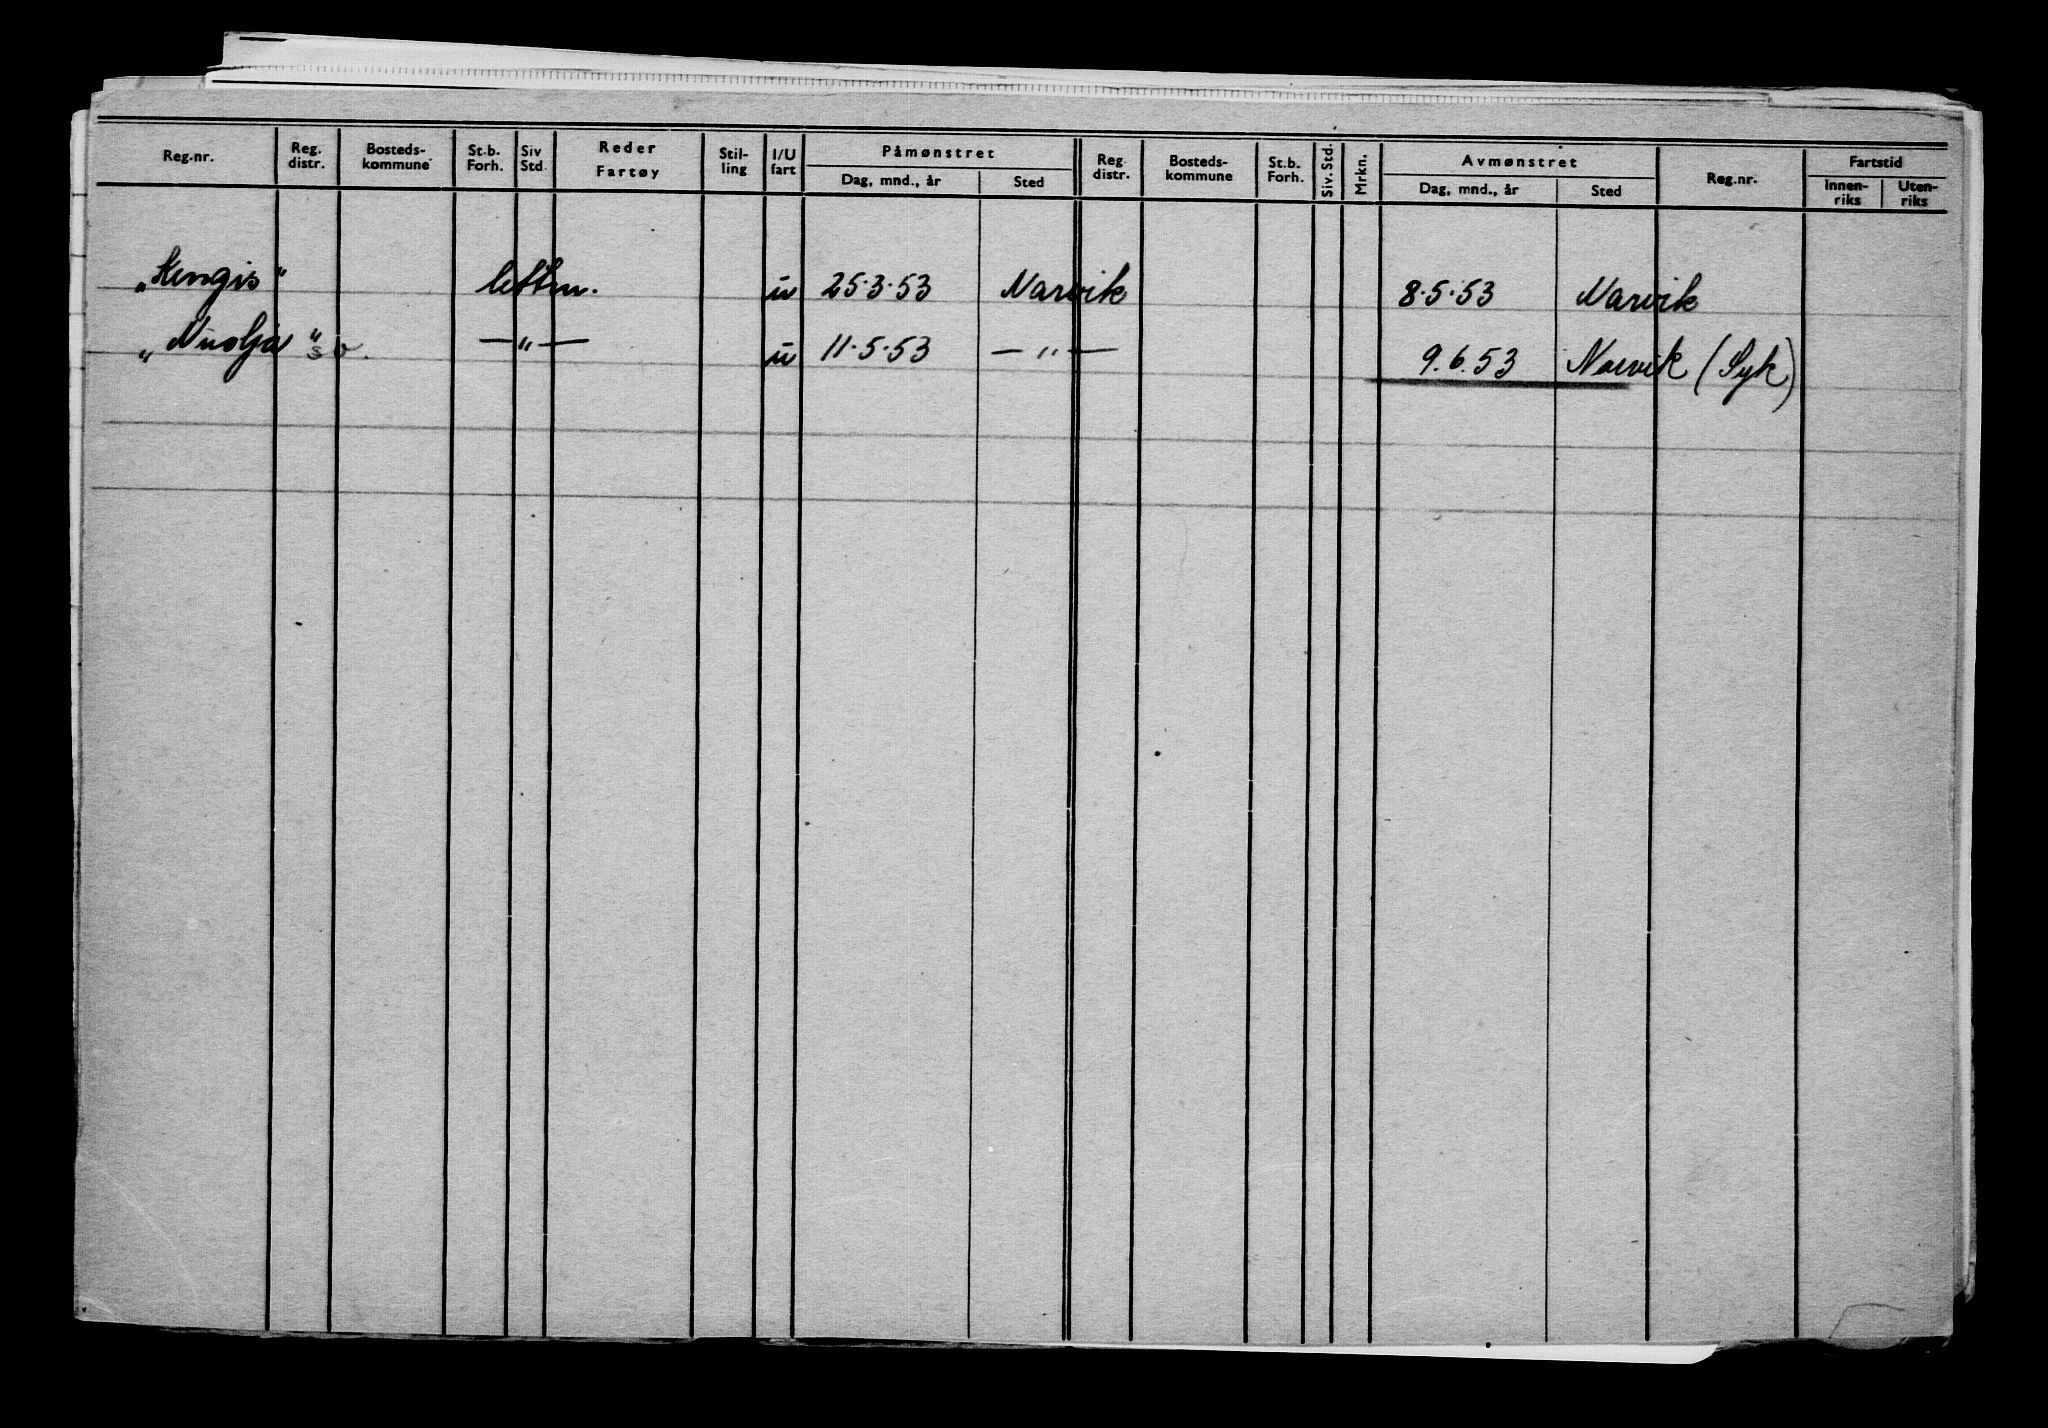 Reg.nr. Reg. distr. Bosteds- kommune St.b. Forh. Siv Std. Reder Fartøy Stil- ling I/U fart Påmønstret Dag, mnd., år Sted Reg. distr. Bosteds- kommune St.b. Forh. Siv. Std. Mrkn. Avmønstret Dag, mnd., år Sted Reg.nr. Fartstid Innen- riks Uten- riks
„Kengis" lettm. u 25.3.53 Narvik 8.5.53 Narvik
„Nuolja" sv. — „ — u 11.5.53 — „ — 9.6.53 Narvik (Syk)